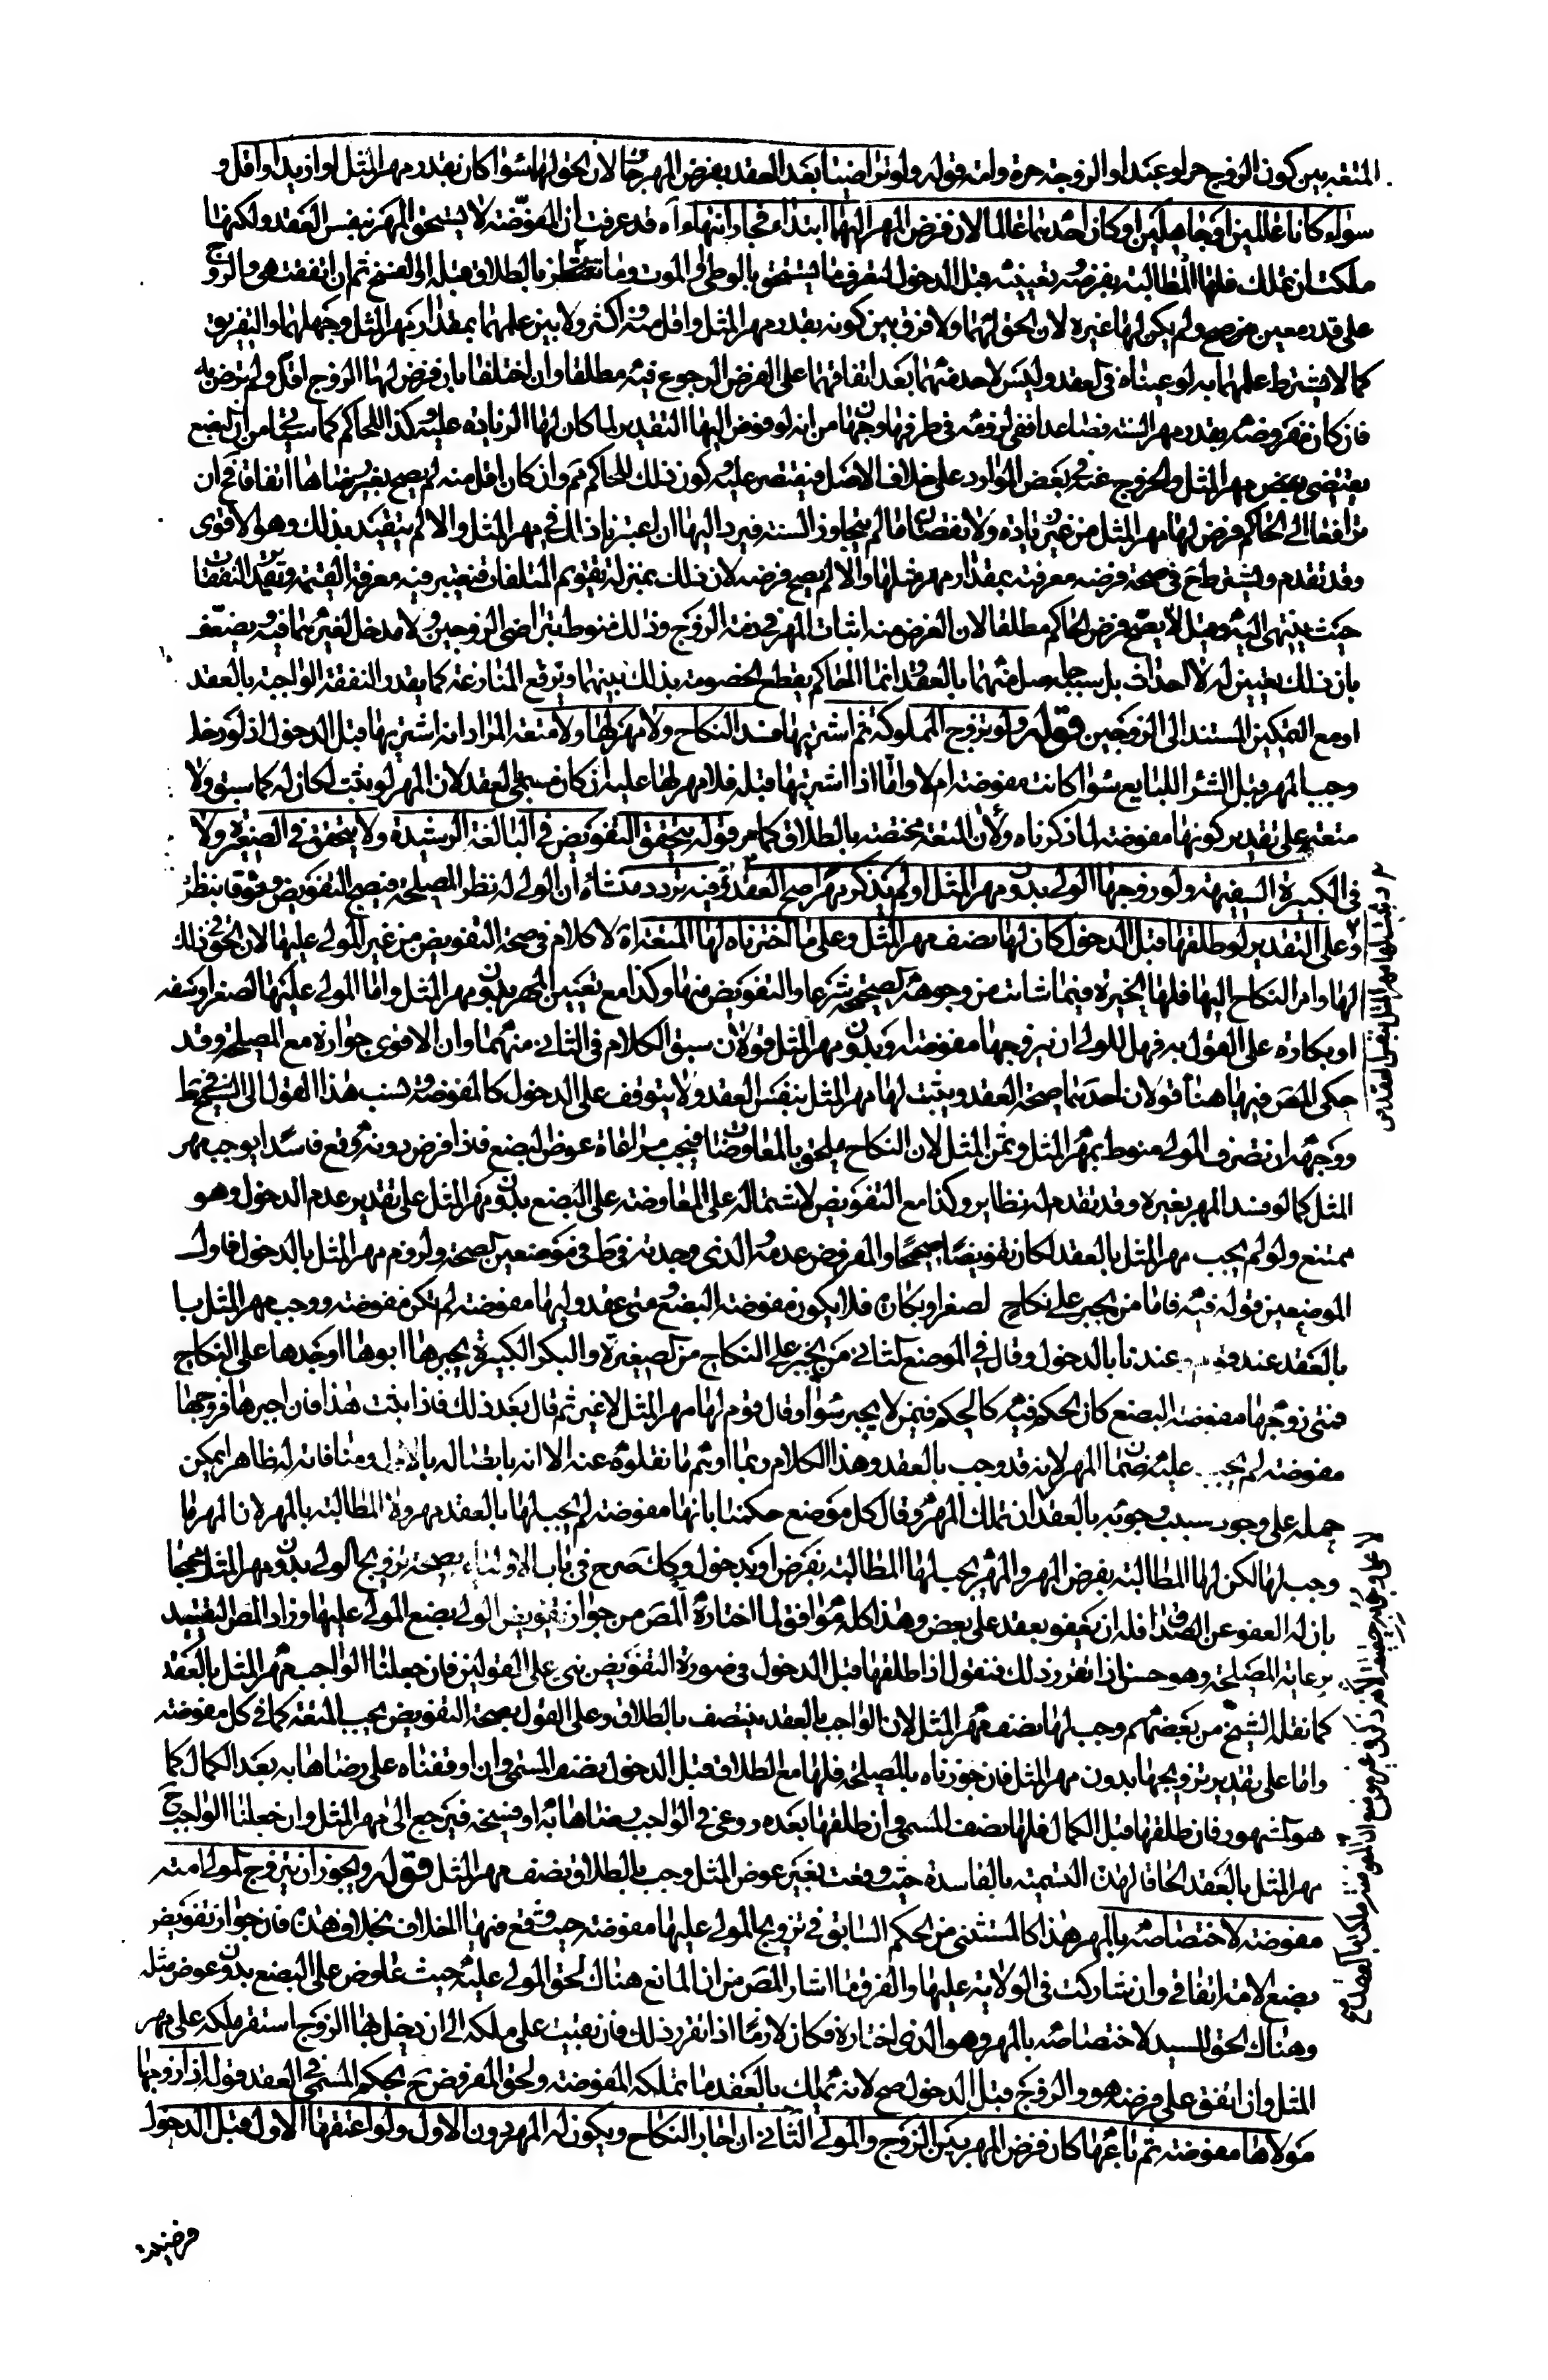 المتعة بين كون الزوج حرا وعبدا والزوجة حرة وامة قوله ولو تراضيا بعد العقد بفرض المهر جاز لان الحق لهما سواء كان بقدر مهر المثل او ازيد او اقل و
سواء كانا عالمين او جاهلين او كان احدهما عالما لان فرض المهر اليهما ابتداء فجاز انتهاء اه قد عرفت ان المفوضة لا تستحق المهر بنفس العقد ولكنها
ملكت ان تملك فلها المطالبة بفرضه وتعيينه قبل الدخول لتعرف ما تستحق بالوطئ او الموت وما يتشطر بالطلاق قبله الى الفسخ ثم ان اتفقت هي والزوج
على قدر معين صح ولم يكن لها غيره لان الحق لهما ولا فرق بين كونه بقدر مهر المثل واقل منه واكثر ولا بين علمهما بمقدار مهر المثل وجهلهما والتفريق
كما لا يشترط علمهما به لو عيناه في العقد وليس لاحد منهما بعد اتفاقهما على الفرض الرجوع فيه مطلقا وان اختلفا بان فرض لها الزوج اقل ولم ترض به
فان كان مفروضه بقدر مهر السنة فصاعدا ففي لزومه في طرفها وجهان من انه لو فوض اليها التقدير لما كان لها الزيادة عليه وكذا للحاكم كما سيجئ ومن ان البضع
يقتضي بعض مهر المثل والخروج عنه في بعض الموارد على خلاف الاصل فيقتصر عليه وكون ذلك للحاكم مم وان كان اقل منه لم يصح بغير رضاها اتفاقا فح ان
ترافعا الى الحاكم فرض لها مهر المثل من غير زيادة ولا نقصان ما لم يتجاوز السنة فيرد اليها ان اعتبرنا ذلك في مهر المثل والا لم يتقيد بذلك وهو الاقوى
وقد تقدم ويشترط ح في صحة فرضه معرفته بمقدار مهر مثلها والا لم يصح فرضه لان ذلك بمنزلة تقويم المتلفات فيعتبر فيه معرفة القيمة وتقدير النفقات
حيث ينتهي اليه وقيل لا يصح فرض الحاكم مطلقا لان الفرض منه اثبات المهر في ذمة الزوج وذلك منوط بتراضي الزوجين ولا مدخل لغيرهما فيه ويضعف
بان ذلك تعيين له لا احداث بل سببه حاصل منهما بالعقد وانما الحاكم يقطع الخصومة بذلك بينهما ويرفع المنازعة كما يقدر النفقة الواجبة بالعقد
او مع التمكين المستند الى الزوجين قوله ولو تزوج المملوكة ثم اشتريها فسد النكاح ولا مهر لها ولا متعة المراد انه اشتريها قبل الدخول اذ لو دخل
وجب المهر قبل الشراء للبايع سواء كانت مفوضة ام لا واما اذا اشتريها قبله فلا مهر لها عليه ان كان مسمى في العقد لان المهر لو ثبت لكان له كما سبق ولا
متعة على تقدير كونها مفوضة لما ذكرناه ولان المتعة مختصة بالطلاق كما مر قوله يتحقق التفويض في البالغة الرشيدة ولا يتحقق في الصغيرة ولا
في الكبيرة السفيهة ولو زوجها الولي بدون مهر المثل او لم يذكر مهرا صح العقد وفيه تردد منشأه ان الولي له نظر المصلحة فيصح التفويض وثوقا بنظره
وعلى التقديرين لو طلقها قبل الدخول كان لها نصف مهر المثل وعلى ما اخترناه لها المتعة اه لا كلام في صحة التفويض من غير المولى عليها لان الحق في ذلك
لها وامر النكاح اليها فلها الخيرة فيما شاءت من وجوهه الصحيحة شرعا والتفويض منها وكذا مع تعيين المهر بدون مهر المثل واما المولى عليها لصغر او سفه
او بكارة على القول به فهل للولي ان يزوجها مفوضة او بدون مهر المثل قولان سبق الكلام في الثاني منهما وان الاقوى جوازه مع المصلحة وقد
حكى المص فيها هنا قولان احدهما صحة العقد ويثبت لها مهر المثل بنفس العقد ولا يتوقف على الدخول كالمفوضة ونسب هذا القول الى الشيخ في ط
ووجهه ان تصرف المولى منوط بمهر المثل وثمن المثل لان النكاح ملحق بالمعاوضات فيجب مراعاة عوض البضع فاذا فرض دونه وقع فاسدا يوجب مهر
المثل كما لو فسد المهر بغيره وقد تقدم له نظاير وكذا مع التفويض لاشتماله على المعاوضة على البضع بدون مهر المثل على تقدير عدم الدخول وهو
ممتنع ولو لم يجب مهر المثل بالعقد لكان تفويضا صحيحا والمفروض عدمه والذي وجدته في ط في موضعين الصحة ولزوم مهر المثل بالدخول فاول
الموضعين قوله فيه فاما من يجبر على نكاح لصغر او بكارة فلا يكون مفوضة البضع ومتى عقد وليها مفوضة لم تكن مفوضة ووجب مهر المثل با
بالعقد عند قوم وعندنا بالدخول وقال في الموضع الثاني من يجبر على النكاح من الصغيرة والبكر الكبيرة يجبرها ابوها او جدها على النكاح
فمتى زوجها مفوضة البضع كان الحكم فيه كالحكم فيمن لا يجبر سواء وقال قوم لها مهر المثل لا غير ثم قال بعد ذلك فاذا ثبت هذا فان اجبرها فزوجها
مفوضة لم يجب عليه ضمان المهر لانه قد وجب بالعقد وهذا الكلام ربما اوهم ما نقلوه عنه الا انه باتصاله بالاول ومنافاته لظاهر يمكن
حمله على وجود سبب وجوبه بالعقد ان تملك المهر وقال كل موضع حكمنا بانها مفوضة لم يجب لها بالعقد مهر ولا المطالبة بالمهر لان المهر ما
وجب لها لكن لها المطالبة بفرض المهر والمهر يجب لها المطالبة بفرض او بدخول وكك صرح في باب الاولياء بصحة تزويج الولي بدون مهر المثل محتجا
بان له العفو عن الصداق فله ان يعفو بعقد على بعض وهذا كله موافق لما اختاره المص من جواز تفويض الولي بضع المولى عليها وزاد المص التقييد
برعاية المصلحة وهو حسن اذا تقرر ذلك فنقول اذا طلقها قبل الدخول في صورة التفويض بني على القولين فان جعلنا الواجب مهر المثل بالعقد
كما نقله الشيخ من بعضهم وجب لها نصف مهر المثل لان الواجب بالعقد ينتصف بالطلاق وعلى القول بصحة التفويض يجب المتعة كما في كل مفوضة
واما على تقدير تزويجها بدون مهر المثل فان جوزناه بالمصلحة فلها مع الطلاق قبل الدخول نصف المسمى وان اوقفناه على رضاها به بعد الكمال كما
هو المشهور فان طلقها قبل الكمال فلها نصف المسمى وان طلقها بعده روعي في الواجب رضاها به او فسخه فيرجع الى مهر المثل وان جعلنا الواجب ح
مهر المثل بالعقد الحاقا لهذه التسمية بالفاسدة حيث وقعت بغير عوض المثل وجب بالطلاق نصف مهر المثل قوله ويجوز ان يزوج المولى امته
مفوضة لاختصاصه بالمهر هذا كالمستثنى من الحكم السابق في تزويج المولى عليها مفوضة حيث وقع فيها الخلاف بخلاف هذه فان جواز تفويض
بضع الامة اتفاقي وان شاركت في الولاية عليها والفرق ما اشار المص من ان المانع هناك لحق المولى عليه حيث عاوض على البضع بدون عوض مثله
وهناك الحق للسيد لاختصاصه بالمهر وهو الذي اختاره فكان لازما اذا تقرر ذلك فان بقيت على ملكه الى ان دخل بها الزوج استقر ملكه على مهر
المثل وان اتفق على فرضه هو والزوج قبل الدخول صح لانه يملك بالعقد ما تملكه المفوضة ولحق المفروض ح بحكم المسمى في العقد قوله اذا زوجها
مولاها مفوضة ثم باعها كان فرض المهر بين الزوج والمولى الثاني ان اجاز النكاح ويكون له المهر دون الاول ولو اعتقها الاول قبل الدخول